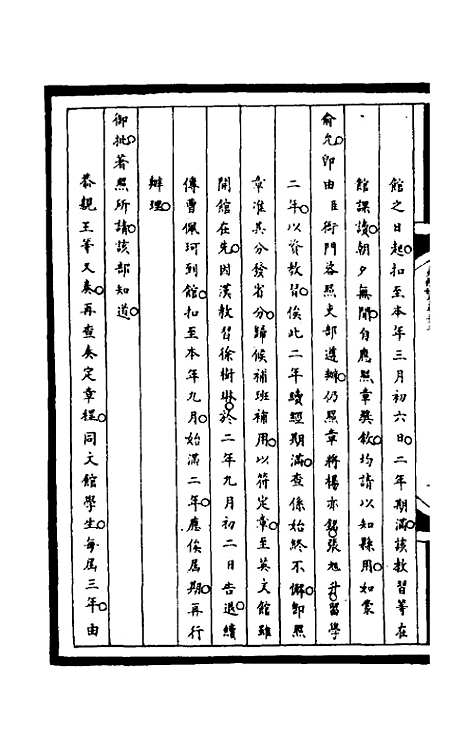 館之日起扣至本年三月初六日二年期滿該教習等在
館課讀朝夕無間自應照章獎敘均請以知縣用如蒙
俞允即由臣衙門咨照吏部遵辦仍照章將楊亦銘張旭升留學
二年以資教習俟此二年續經期滿查係始終不懈即照
章准其分發省分歸候補班補用以符定章至英文館雖
開館在先因漢教習徐樹琳於二年九月初二日告退續
傳曹佩珂到館扣至本年九月始滿二年應俟屆期再行
辦理
御批著照所請該部知道
恭親王等又奏再查奏定章程同文館學生每屆三年由